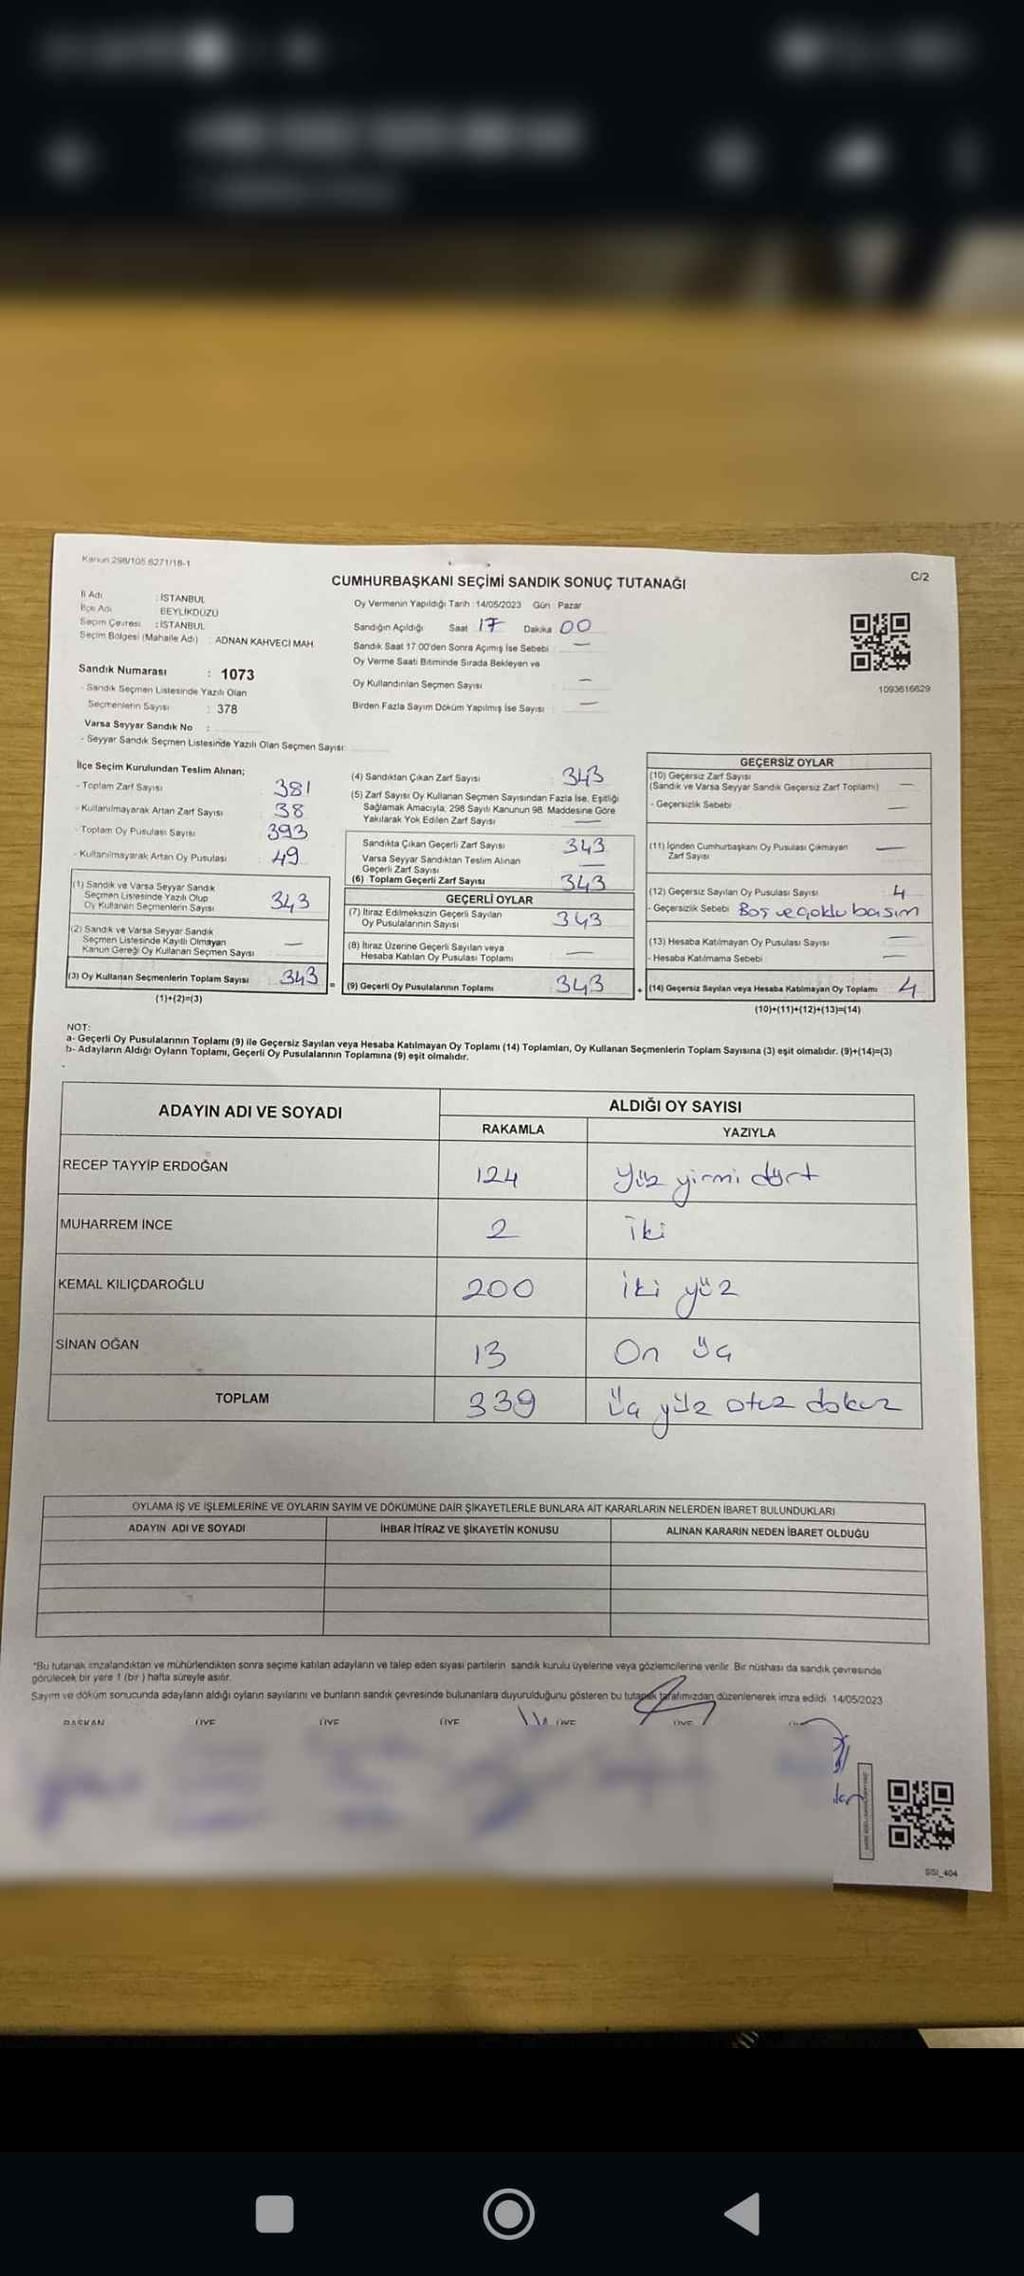 Kanun 298/105 6271/18-1
C/2
CUMHURBAŞKANI SEÇİMİ SANDIK SONUÇ TUTANAĞI
İl Adı : İSTANBUL
İlçe Adı BEYLİKDÜZÜ
Seçim Çevresi : İSTANBUL
Seçim Bölgesi (Mahalle Adı) : ADNAN KAHVECİ MAH
Sandık Numarası : 1073
- Sandık Seçmen Listesinde Yazılı Olan
Seçmenlerin Sayısı : 378
Varsa Seyyar Sandık No :
- Seyyar Sandık Seçmen Listesinde Yazılı Olan Seçmen Sayısı:
Oy Vermenin Yapıldığı Tarih : 14/05/2023 Gün : Pazar
Sandığın Açıldığı Saat 17 Dakika 00
Sandık Saat 17:00'den Sonra Açımış İse Sebebi : —
Oy Verme Saati Bitiminde Sırada Bekleyen ve
Oy Kullandırılan Seçmen Sayısı : —
Birden Fazla Sayım Döküm Yapılmış İse Sayısı : —
1093616629
İlçe Seçim Kurulundan Teslim Alınan;
- Toplam Zarf Sayısı : 381
- Kullanılmayarak Artan Zarf Sayısı : 38
- Toplam Oy Pusulası Sayısı : 393
- Kullanılmayarak Artan Oy Pusulası : 49
(1) Sandık ve Varsa Seyyar Sandık
Seçmen Listesinde Yazılı Olup
Oy Kullanan Seçmenlerin Sayısı 343
(2) Sandık ve Varsa Seyyar Sandık
Seçmen Listesinde Kayıtlı Olmayan
Kanun Gereği Oy Kullanan Seçmen Sayısı —
(3) Oy Kullanan Seçmenlerin Toplam Sayısı 343
(1)+(2)=(3)
(4) Sandıktan Çıkan Zarf Sayısı 343
(5) Zarf Sayısı Oy Kullanan Seçmen Sayısından Fazla İse, Eşitliği
Sağlamak Amacıyla, 298 Sayılı Kanunun 98. Maddesine Göre
Yakılarak Yok Edilen Zarf Sayısı —
Sandıkta Çıkan Geçerli Zarf Sayısı 343
Varsa Seyyar Sandıktan Teslim Alınan
Geçerli Zarf Sayısı —
(6) Toplam Geçerli Zarf Sayısı 343
GEÇERLİ OYLAR
(7) İtiraz Edilmeksizin Geçerli Sayılan
Oy Pusulalarının Sayısı 343
(8) İtiraz Üzerine Geçerli Sayılan veya
Hesaba Katılan Oy Pusulası Toplamı —
= (9) Geçerli Oy Pusulalarının Toplamı 343
GEÇERSİZ OYLAR
(10) Geçersiz Zarf Sayısı —
(Sandık ve Varsa Seyyar Sandık Geçersiz Zarf Toplamı)
- Geçersizlik Sebebi —
(11) İçinden Cumhurbaşkanı Oy Pusulası Çıkmayan
Zarf Sayısı —
(12) Geçersiz Sayılan Oy Pusulası Sayısı 4
- Geçersizlik Sebebi Boş ve çoklu basım
(13) Hesaba Katılmayan Oy Pusulası Sayısı —
- Hesaba Katılmama Sebebi —
+ (14) Geçersiz Sayılan veya Hesaba Katılmayan Oy Toplamı 4
(10)+(11)+(12)+(13)=(14)
NOT:
a- Geçerli Oy Pusulalarının Toplamı (9) ile Geçersiz Sayılan veya Hesaba Katılmayan Oy Toplamı (14) Toplamları, Oy Kullanan Seçmenlerin Toplam Sayısına (3) eşit olmalıdır. (9)+(14)=(3)
b- Adayların Aldığı Oyların Toplamı, Geçerli Oy Pusulalarının Toplamına (9) eşit olmalıdır.
ADAYIN ADI VE SOYADI ALDIĞI OY SAYISI
RAKAMLA YAZIYLA
RECEP TAYYİP ERDOĞAN 124 Yüz yirmi dört
MUHARREM İNCE 2 iki
KEMAL KILIÇDAROĞLU 200 iki yüz
SİNAN OĞAN 13 On üç
TOPLAM 339 üç yüz otuz dokuz
OYLAMA İŞ VE İŞLEMLERİNE VE OYLARIN SAYIM VE DÖKÜMÜNE DAİR ŞİKAYETLERLE BUNLARA AİT KARARLARIN NELERDEN İBARET BULUNDUKLARI
ADAYIN ADI VE SOYADI İHBAR İTİRAZ VE ŞİKAYETİN KONUSU ALINAN KARARIN NEDEN İBARET OLDUĞU
*Bu tutanak imzalandıktan ve mühürlendikten sonra seçime katılan adayların ve talep eden siyasi partilerin sandık kurulu üyelerine veya gözlemcilerine verilir. Bir nüshası da sandık çevresinde
görülecek bir yere 1 (bir) hafta süreyle asılır.
Sayım ve döküm sonucunda adayların aldığı oyların sayılarını ve bunların sandık çevresinde bulunanlara duyurulduğunu gösteren bu tutanak tarafımızdan düzenlenerek imza edildi. 14/05/2023
BAŞKAN ÜYE ÜYE ÜYE ÜYE ÜYE
SSI_404